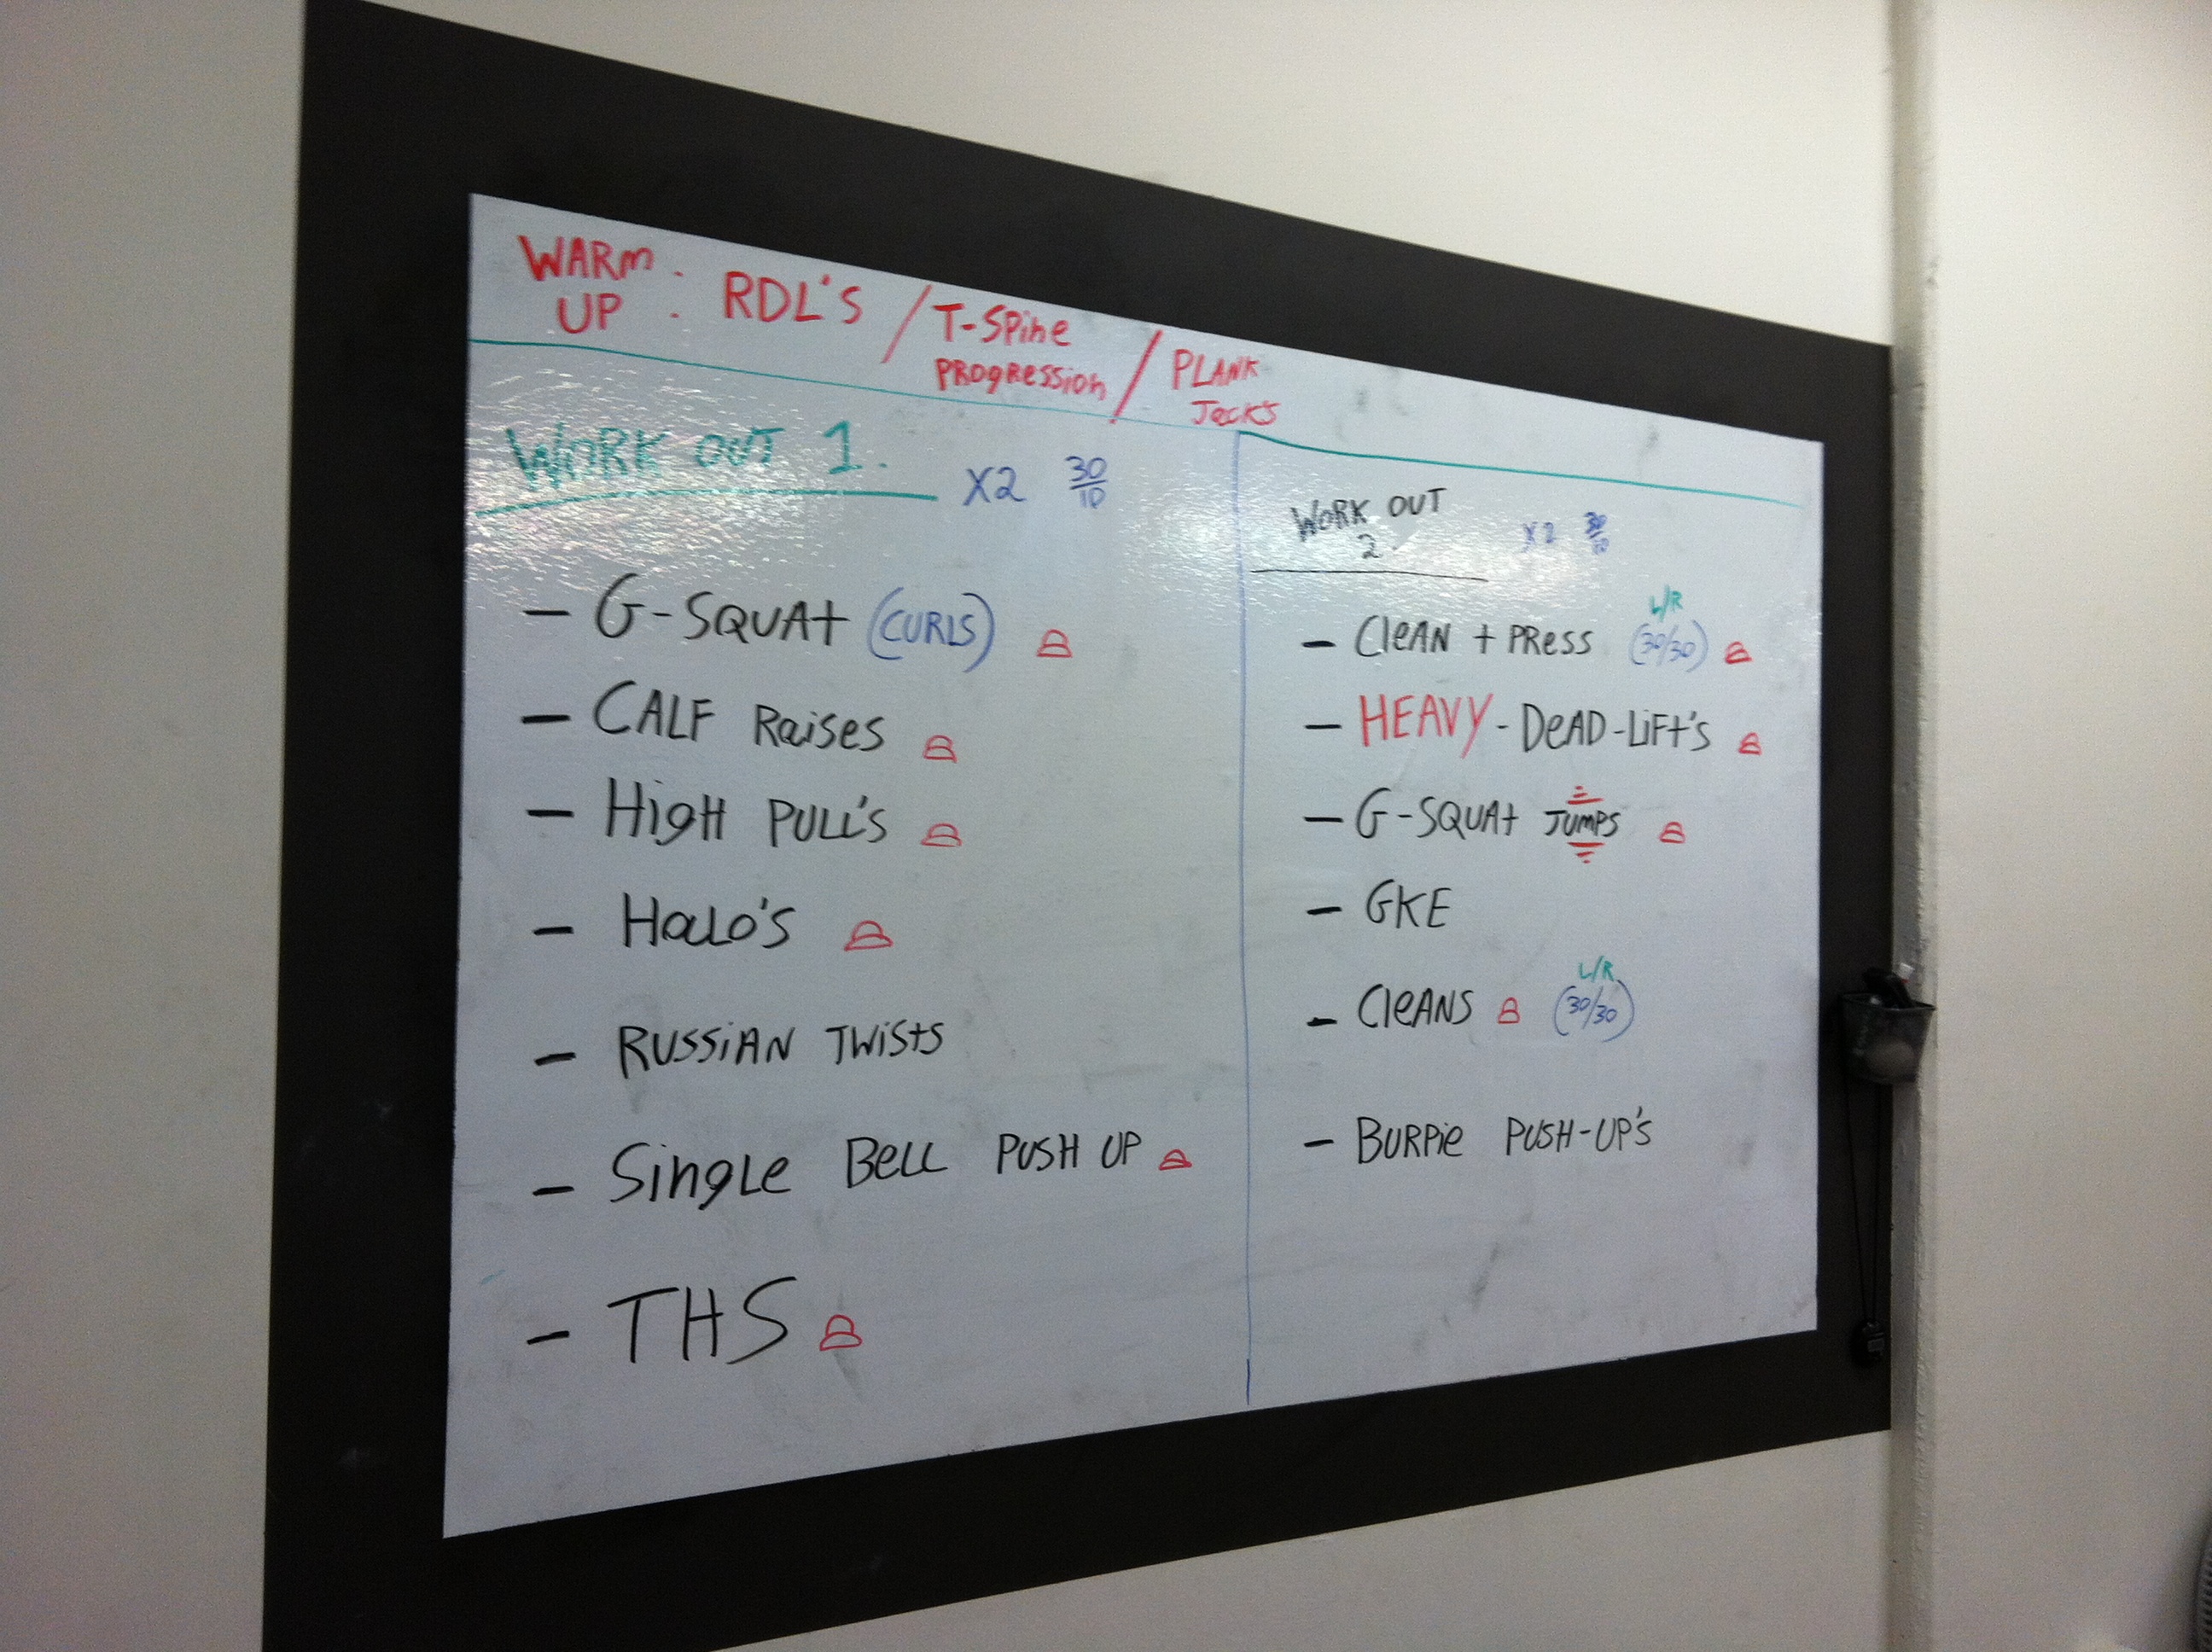 WARM UP : RDL'S / T-SPine PROgRESSion / PLANK Jacks
WORK OUT 1. X2 30/10
- G-SQUAt (CURLS)
- CALF Raises
- HigH PULL'S
- HaLo'S
- RUSSiAN TWiStS
- SingLe BeLL PUSH UP
- THS
WORK OUT 2 X2 30/10
- CleAN + PRess (30/30) L/R
- HEAVY - DeAD-LiFt'S
- G-SQUAt JUMPS
- GKE
- CleANS (30/30) L/R
- BURPie PUSH-UP'S